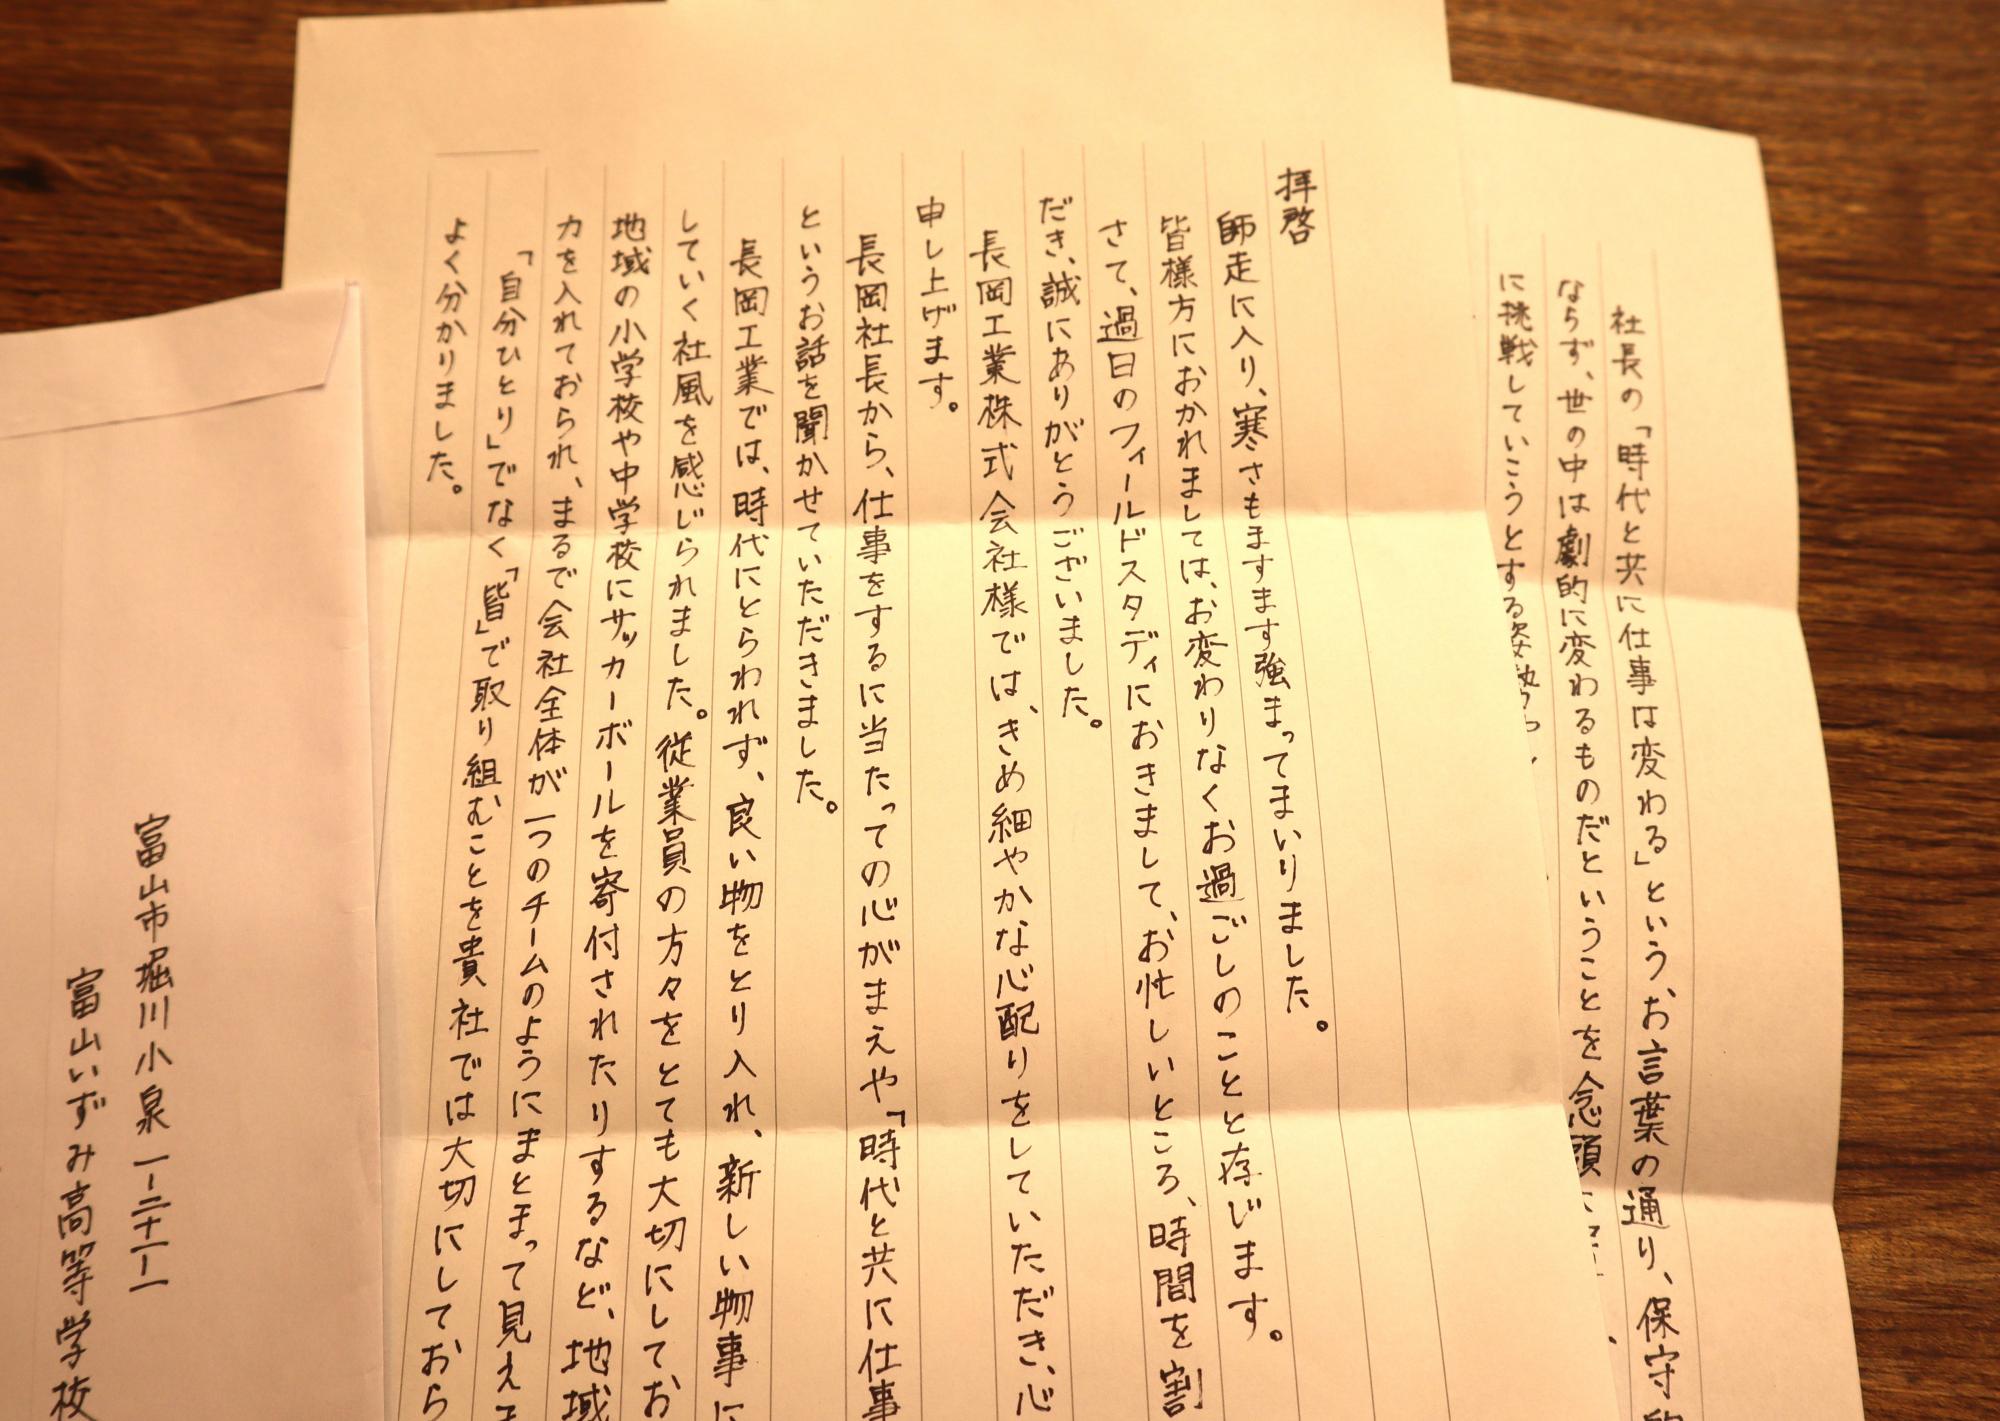 社長の「時代と共に仕事は変わる」という、お言葉の通り、保守的
ならず、世の中は劇的に変わるものだということを念頭に
に挑戦していこうとする姿勢
拝啓
師走に入り、寒さもますます強まってまいりました。
皆様方におかれましては、お変わりなくお過ごしのことと存じます。
さて、過日のフィールドスタディにおきまして、お忙しいところ、時間を割
だき、誠にありがとうございました。
長岡工業株式会社様では、きめ細やかな心配りをしていただき、心
申し上げます。
長岡社長から、仕事をするに当たっての心がまえや「時代と共に仕事
というお話を聞かせていただきました。
長岡工業では、時代にとらわれず、良い物をとり入れ、新しい物事に
していく社風を感じられました。従業員の方々をとても大切にしてお
地域の小学校や中学校にサッカーボールを寄付されたりするなど、地域
力を入れておられ、まるで会社全体が一つのチームのようにまとまって見え
「自分ひとり」でなく「皆」で取り組むことを貴社では大切にしておら
よく分かりました。
富山市堀川小泉一ー二十一ー一
富山いずみ高等学校